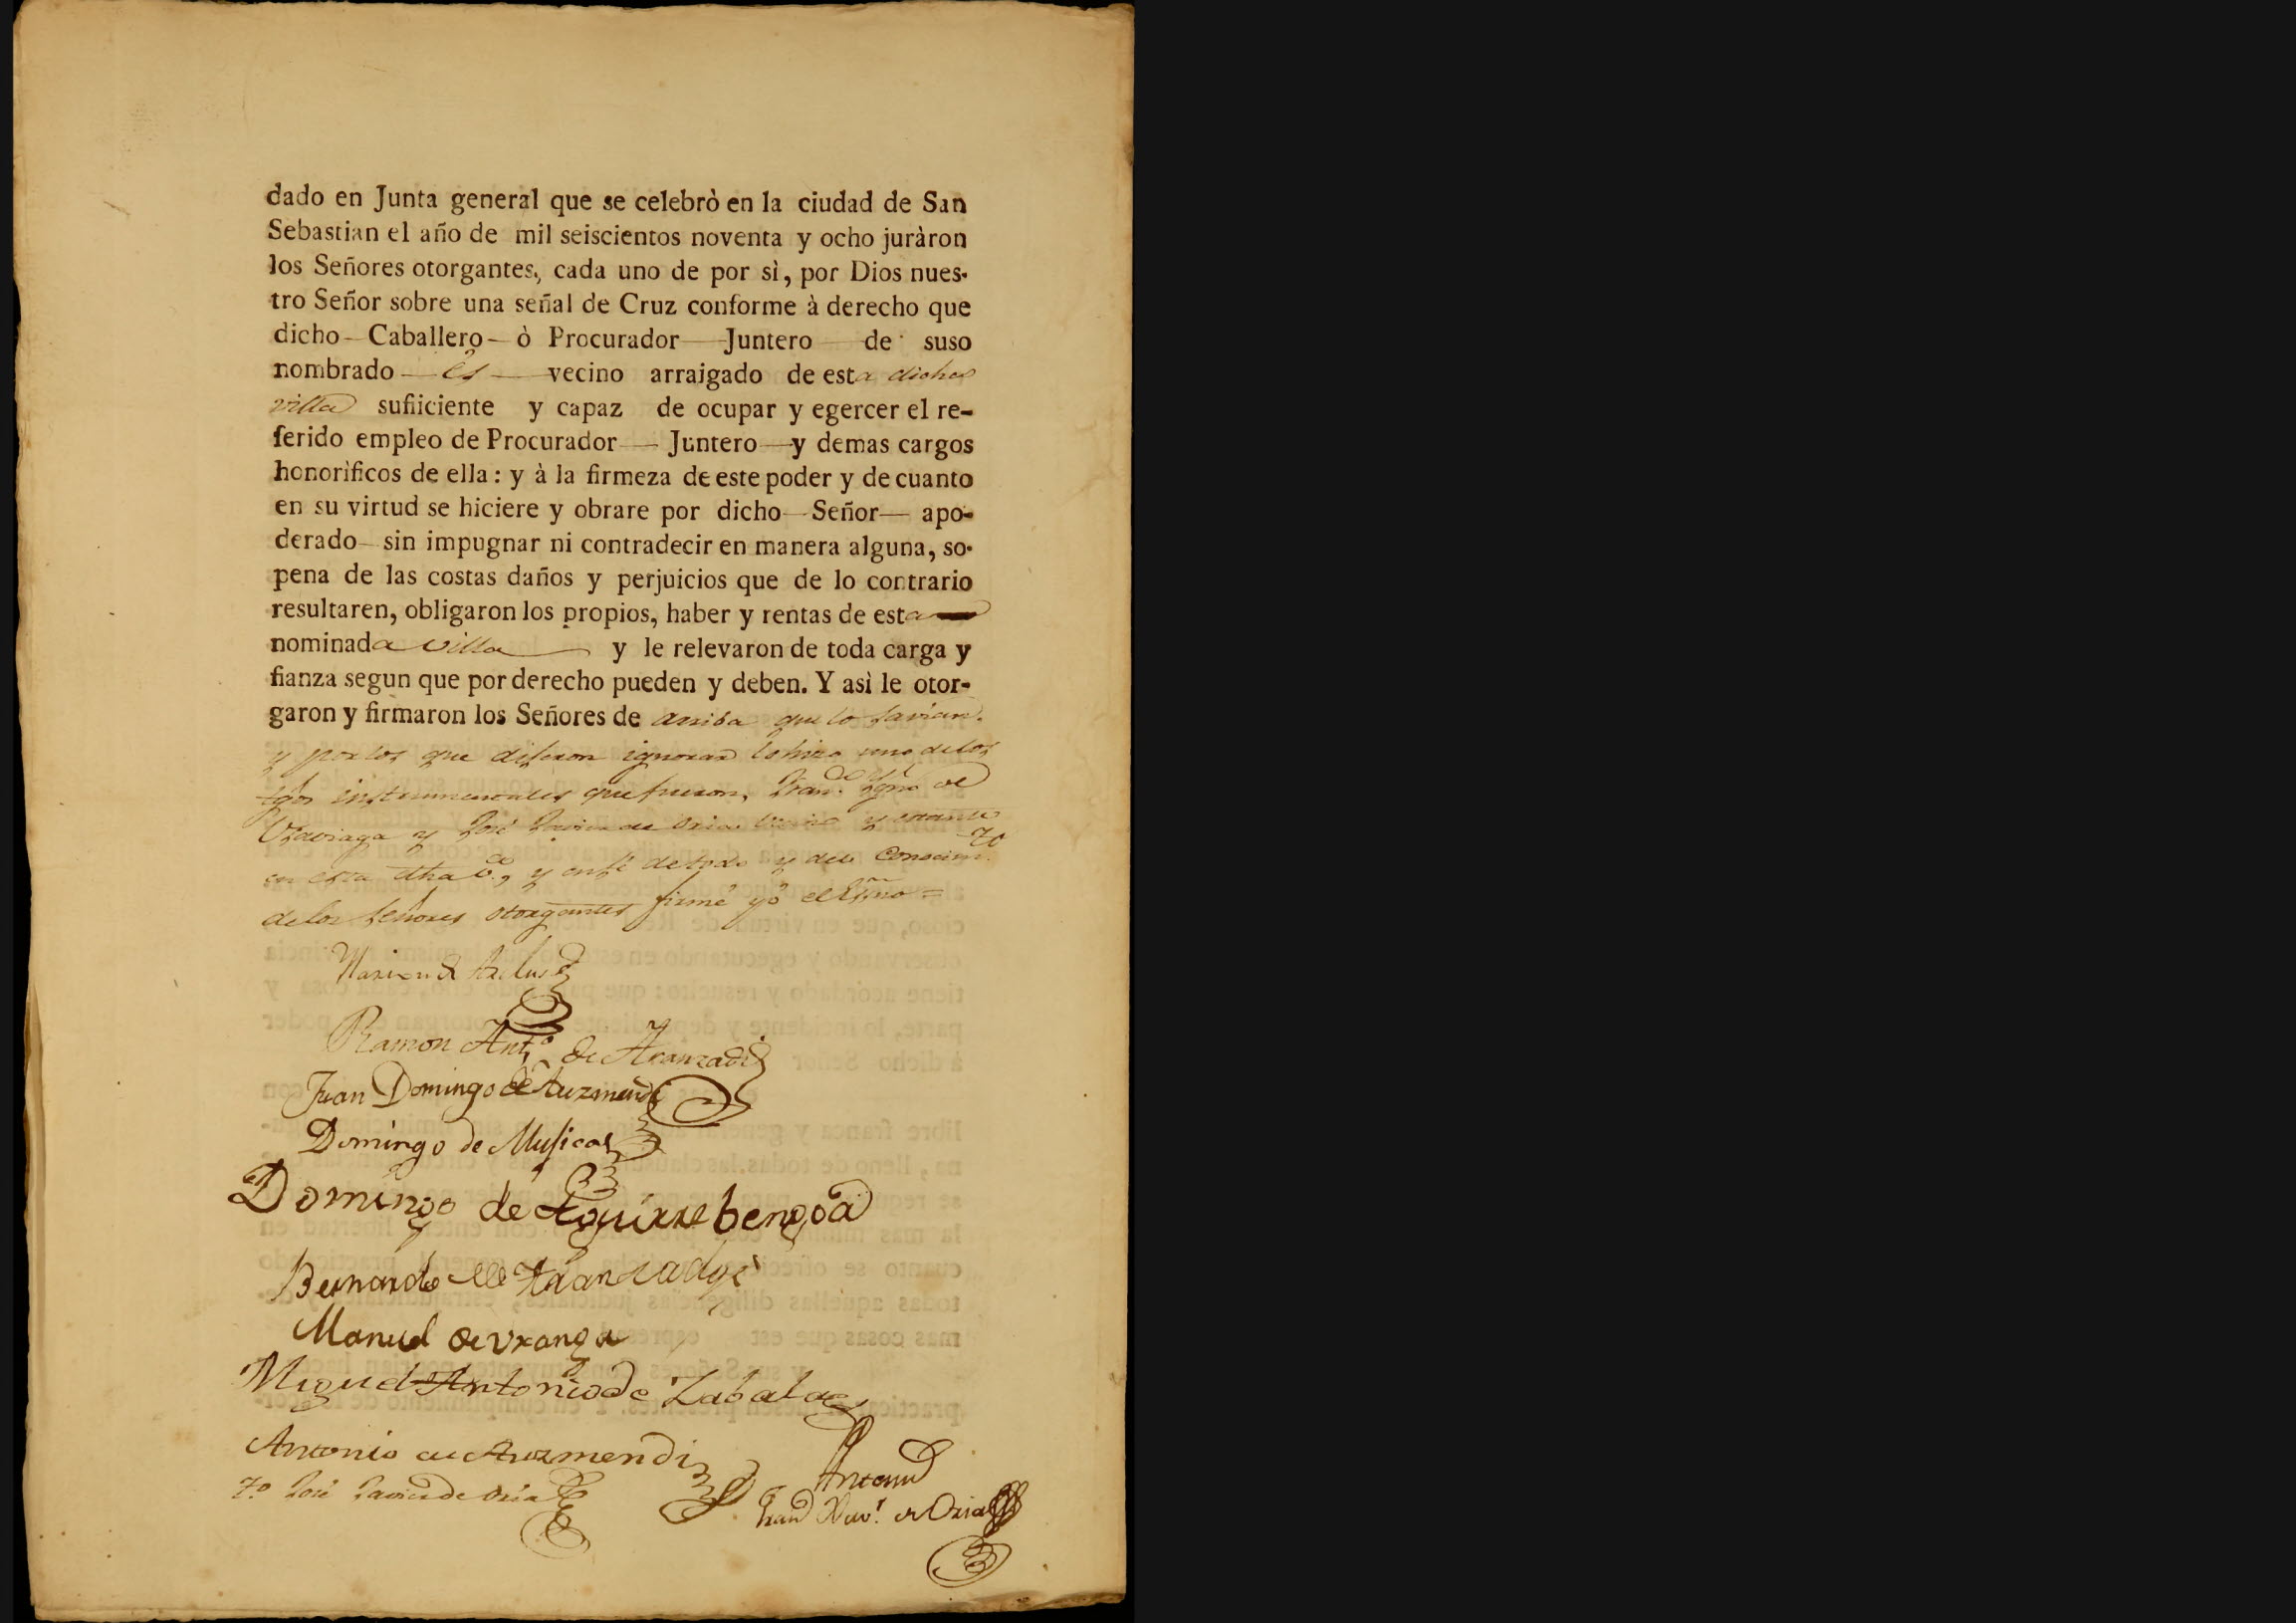 dado en Junta general que se celebrò en la ciudad de San
Sebastian el año de mil seiscientos noventa y ocho juràron
los Señores otorgantes, cada uno de por sì, por Dios nues-
tro Señor sobre una señal de Cruz conforme à derecho que
dicho — Caballero — ò Procurador — Juntero — de suso
nombrado — es — vecino arraigado de esta dicha
villa suficiente y capaz de ocupar y egercer el re-
ferido empleo de Procurador — Juntero — y demas cargos
honorìficos de ella: y à la firmeza de este poder y de cuanto
en su virtud se hiciere y obrare por dicho — Señor — apo-
derado — sin impugnar ni contradecir en manera alguna, so-
pena de las costas daños y perjuicios que de lo contrario
resultaren, obligaron los propios, haber y rentas de esta
nominada villa — y le relevaron de toda carga y
fianza segun que por derecho pueden y deben. Y asì le otor-
garon y firmaron los Señores de arriba que lo savian.
y por los que dijeron ignorar lo hizo uno de los
tgos instrumentales que fueron, Fran.co Ygn.o de
y José Xavier de Oria vecino y estante
en esta dha v.a, y en fé de todo y del conocim.to
de los Señores otorgantes firmé yo el Esno =
Ramon Ant.o de Aranzadi
Juan Domingo de Auzmendi
Domingo de Musica
Domingo de Aguirrebengoa
Bernardo de Aranzadi
Manuel de Uranga
Miguel Antonio de Zabala
Antonio de Auzmendi
T.o José Xavier de Oria
Antemi
Fran.co Xav.r de Oria